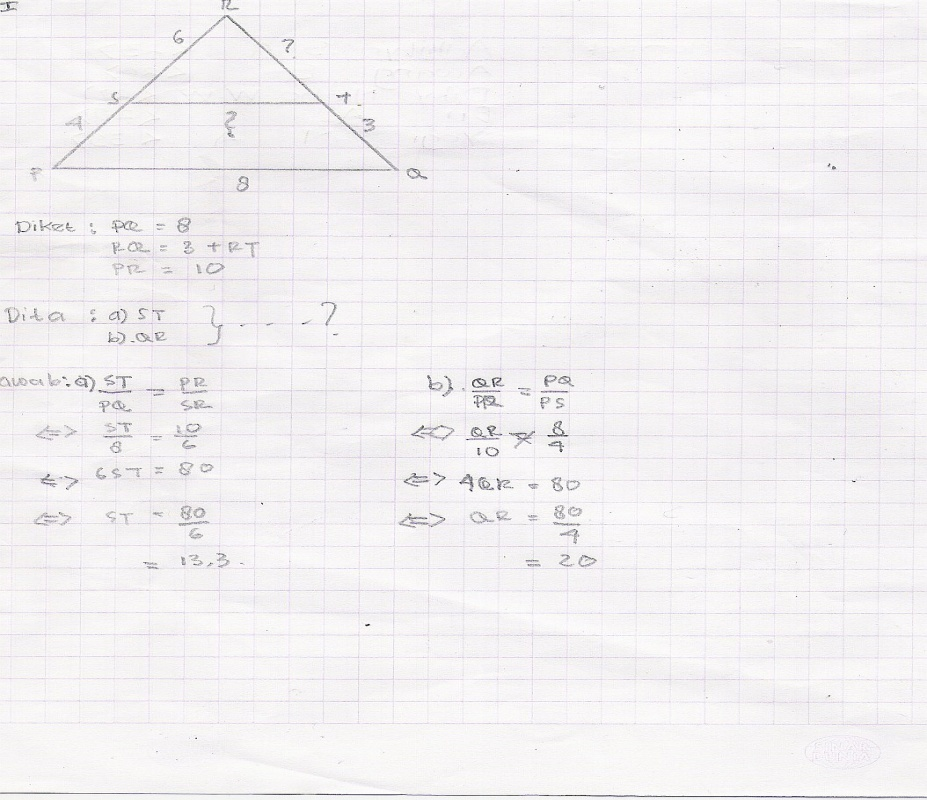 I
R
6 ?
S T
4 ? 3
P Q
8
Diket : PQ = 8
RQ = 3 + RT
PR = 10
Dita : a) ST } . . . ?
b). QR
awab: a) ST/PQ = PR/SR
<=> ST/8 = 10/6
<=> 6ST = 80
<=> ST = 80/6
= 13,3.
b). QR/PR = PQ/PS
<=> QR/10 = 8/4
<=> 4QR = 80
<=> QR = 80/4
= 20